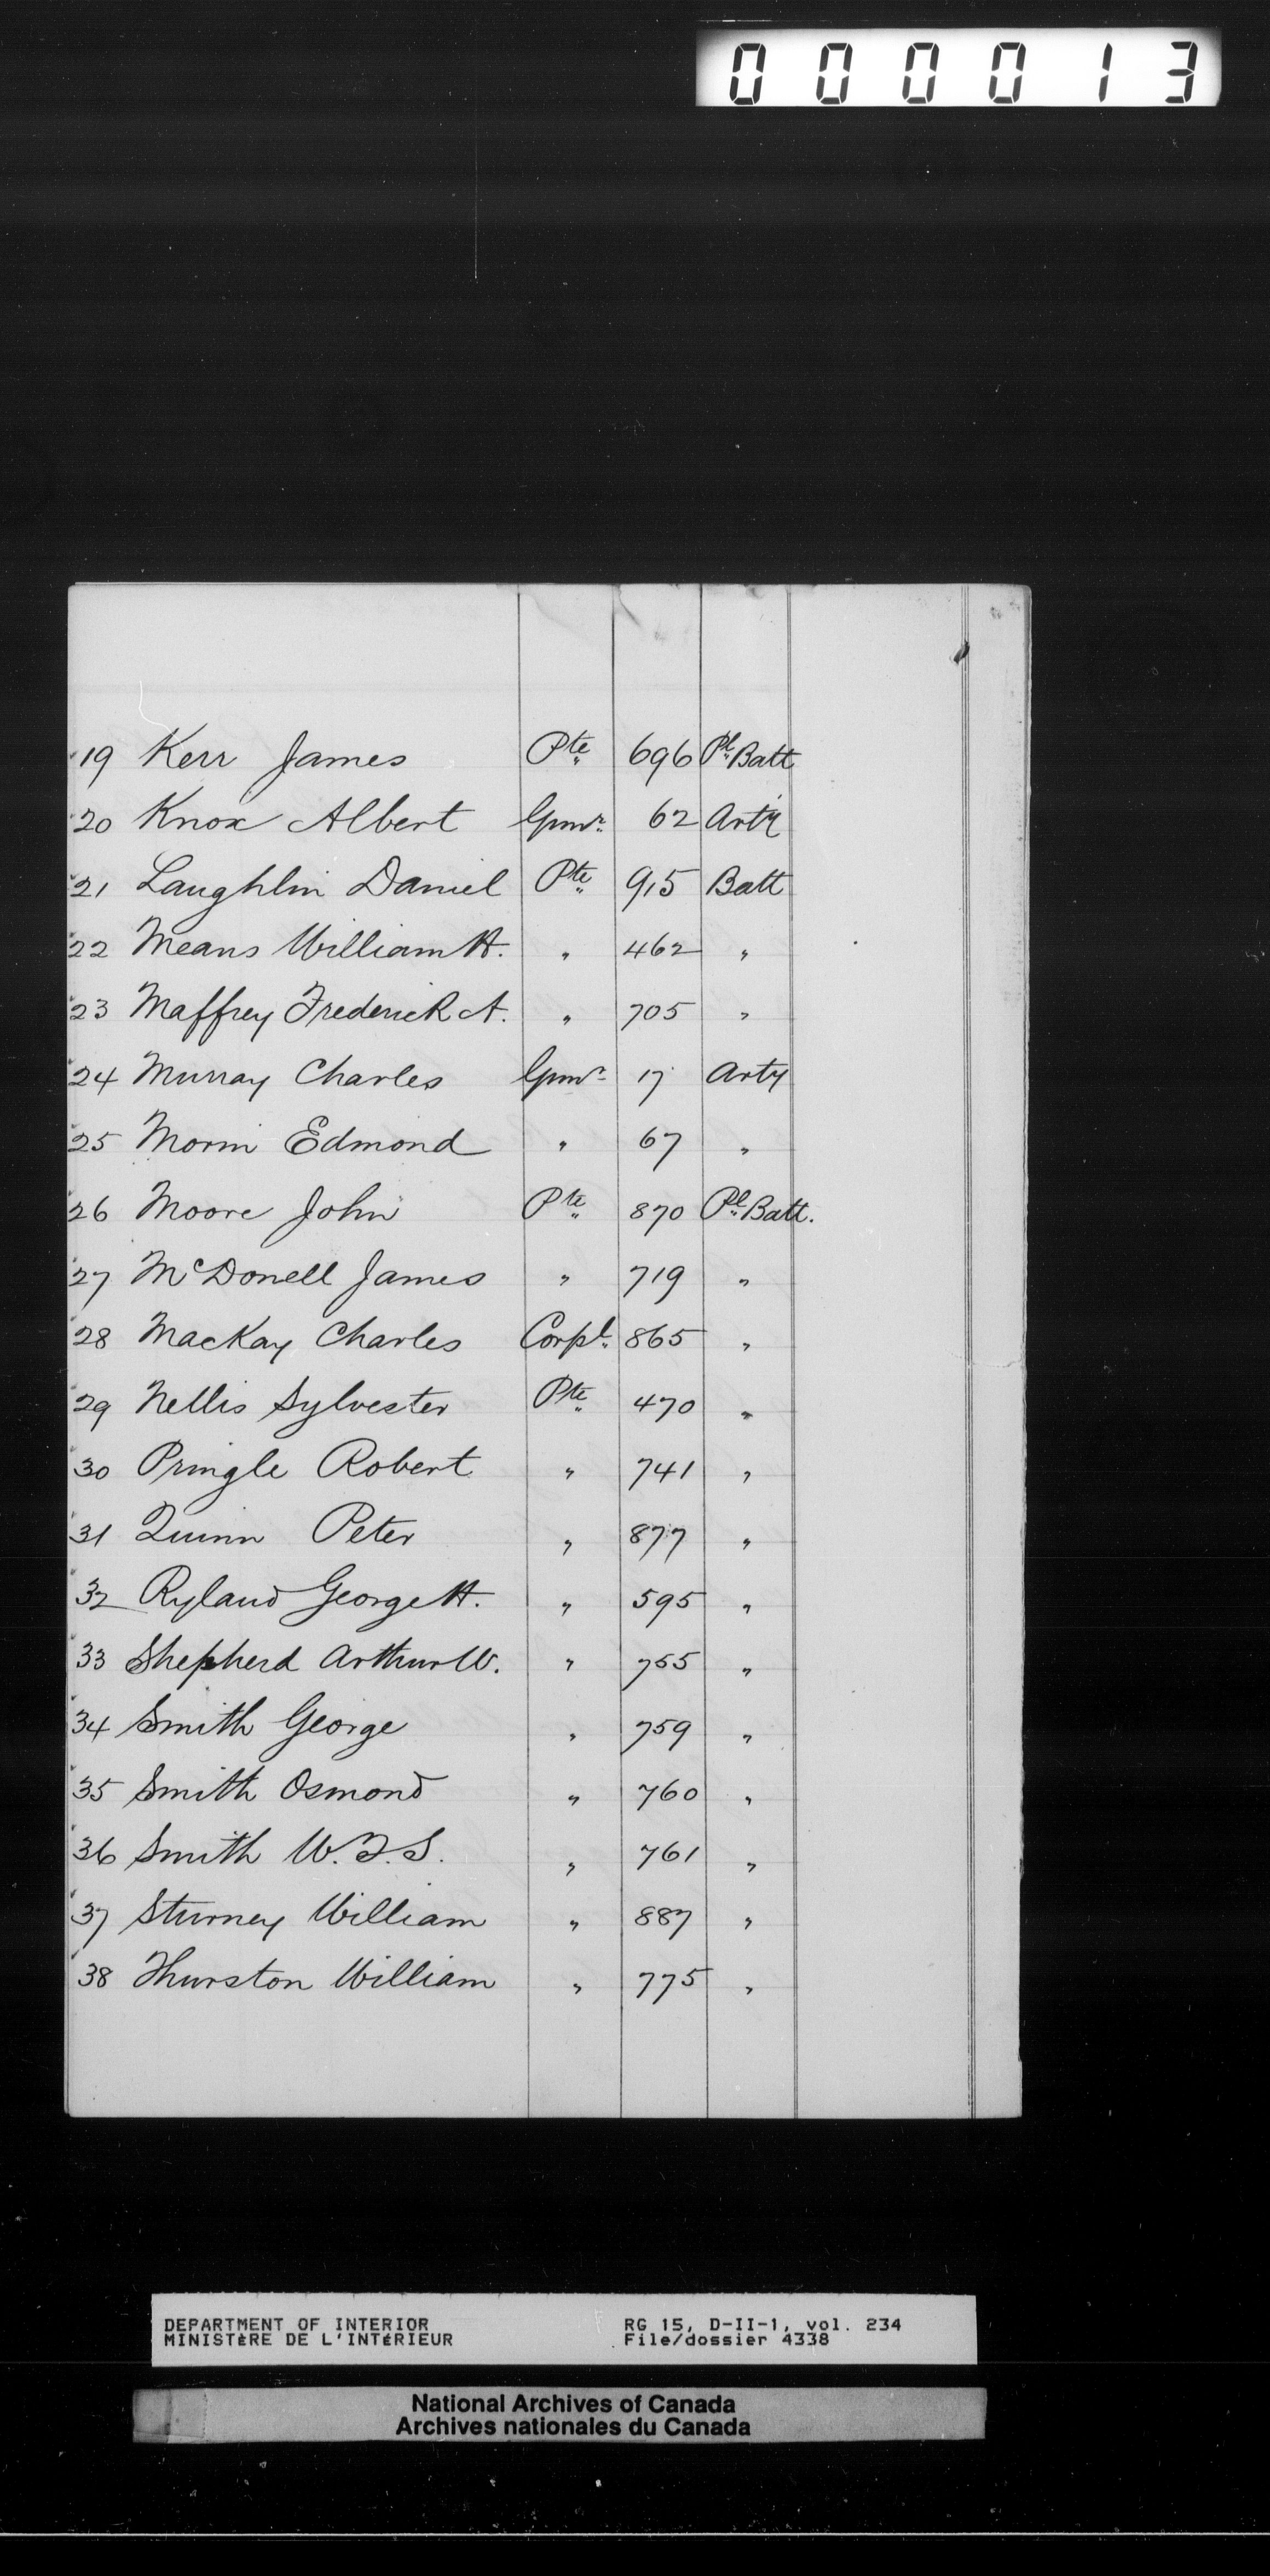 000013
19 Kerr James Pte 696 Pl. Batt
20 Knox Albert Gunr. 62 Arty
21 Laughlin Daniel Pte 915 Batt
22 Means William H. " 462 "
23 Maffrey Frederick A. " 705 "
24 Murray Charles Gunr. 17 Arty
25 Morin Edmond " 67 "
26 Moore John Pte 870 Pl. Batt.
27 McDonell James " 719 "
28 MacKay Charles Corpl. 865 "
29 Nellis Sylvester Pte 470 "
30 Pringle Robert " 741 "
31 Quinn Peter " 877 "
32 Ryland George H. " 595 "
33 Shepherd Arthur W. " 755 "
34 Smith George " 759 "
35 Smith Osmond " 760 "
36 Smith W. F. S. " 761 "
37 Sturney William " 887 "
38 Thurston William " 775 "
DEPARTMENT OF INTERIOR RG 15, D-II-1, vol. 234
MINISTÈRE DE L'INTÉRIEUR File/dossier 4338
National Archives of Canada
Archives nationales du Canada